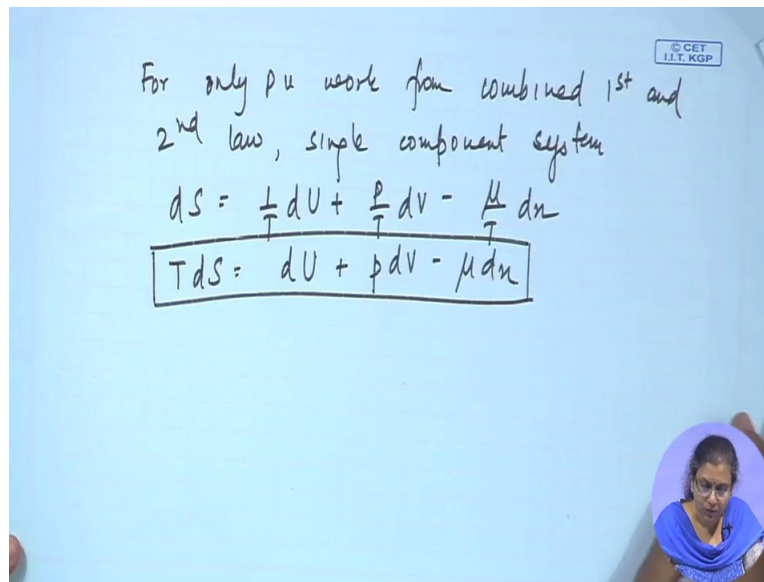 © CET
I.I.T. KGP
For only PV work from combined 1st and
2nd law, single component system
dS = 1/T dU + P/T dV - μ/T dn
TdS = dU + pdV - μdn